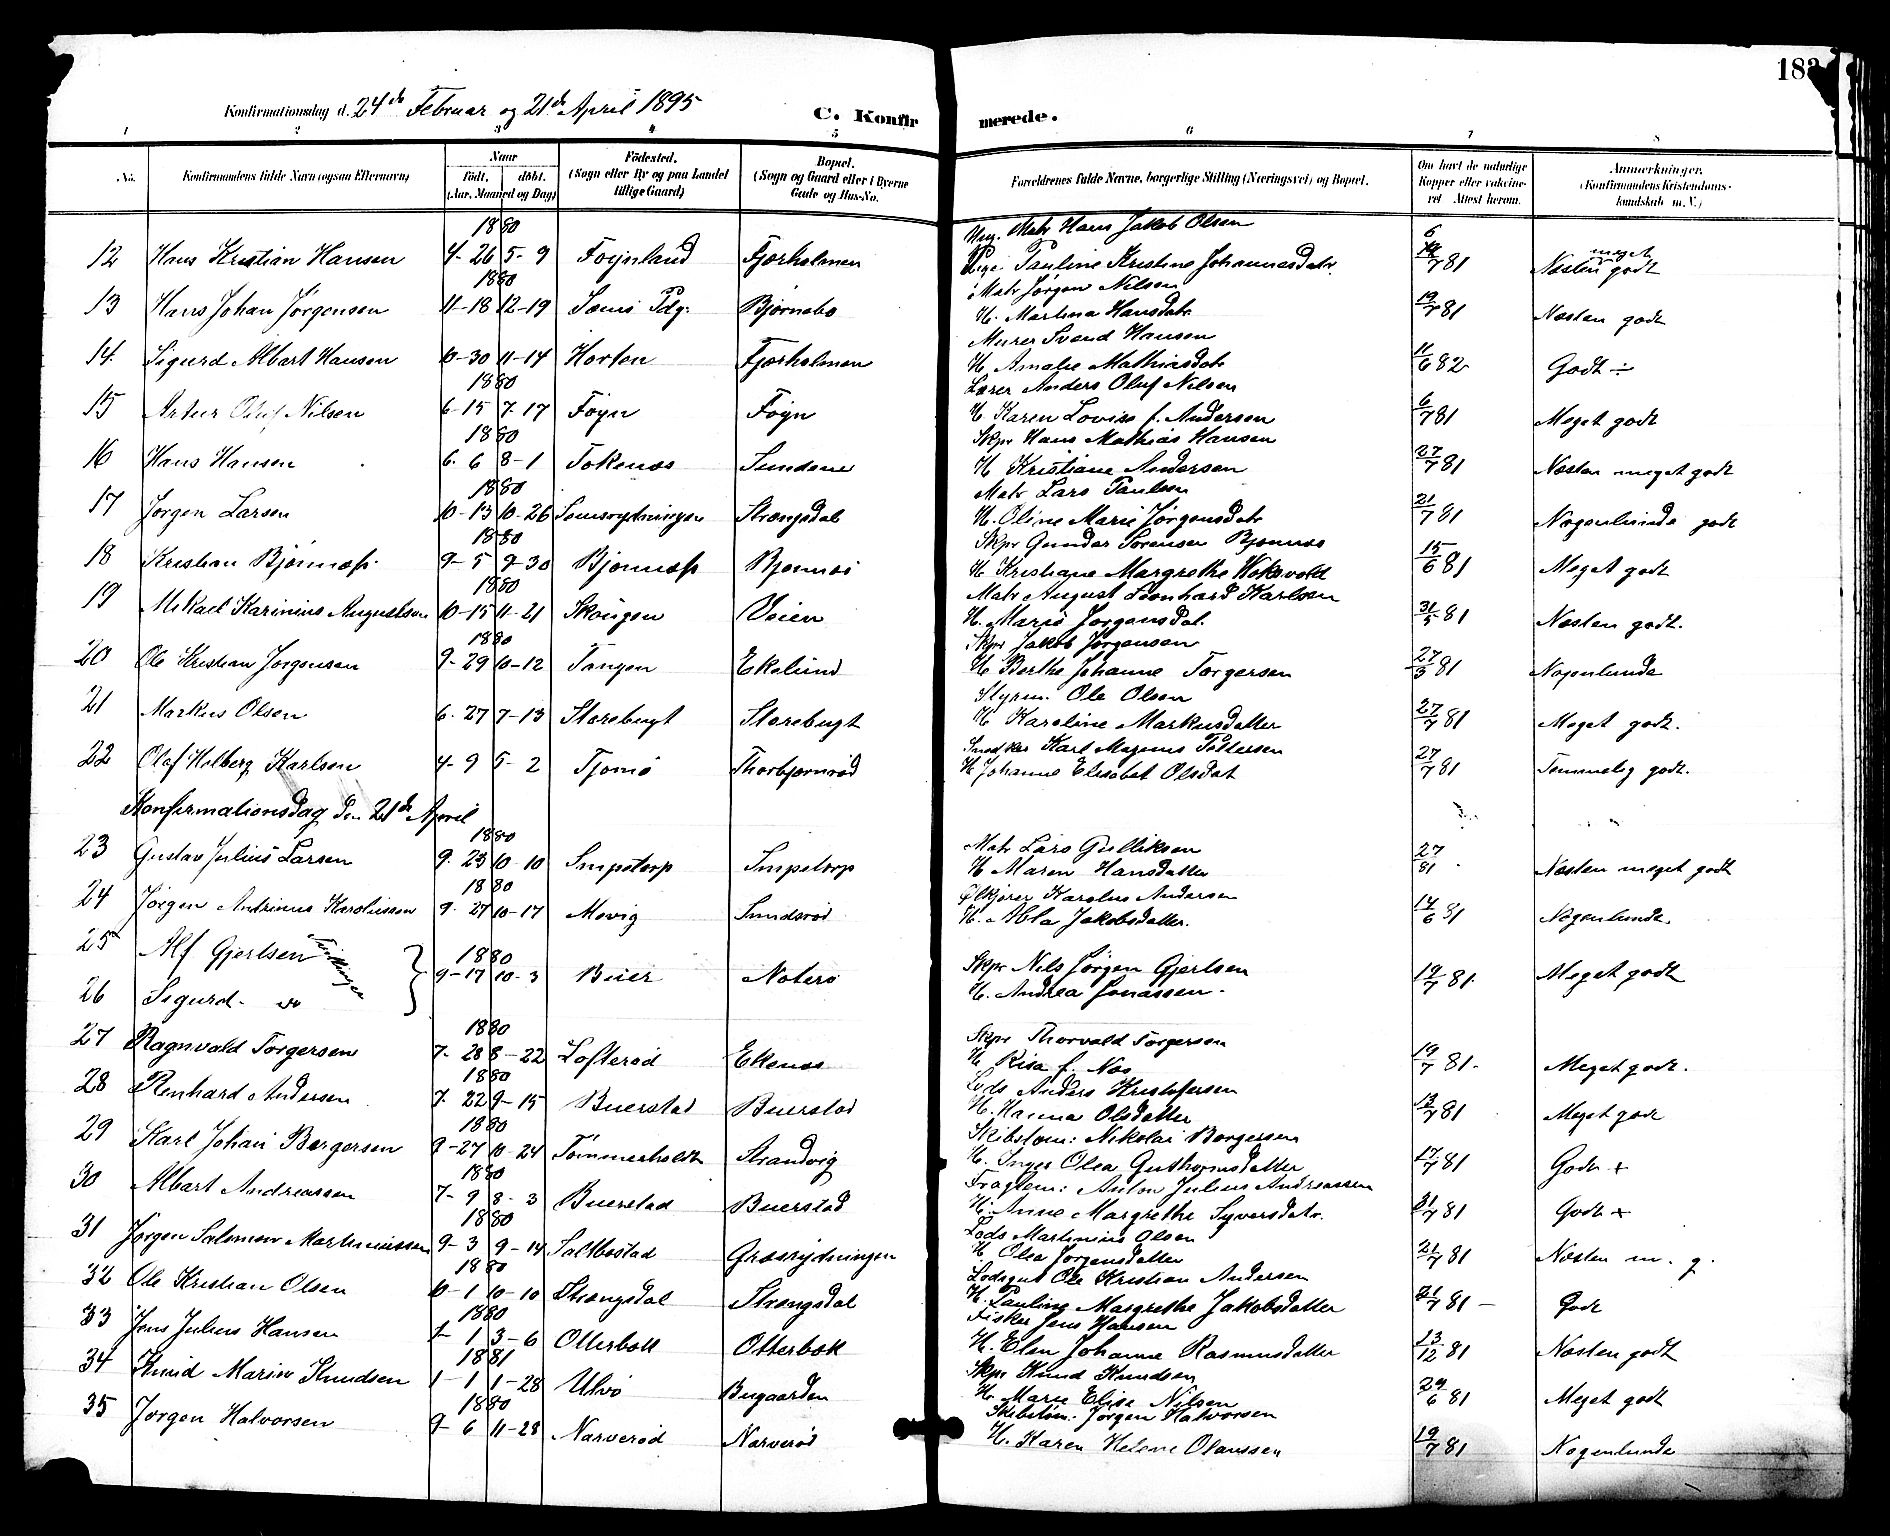 183
Konfirmationsdag d. 24de Februar og 21de April 1895
C. Konfirmerede.
1 2 3 4 5 6 7 8
No. Konfirmandens fulde Navn (ogsaa Efternavn) Naar født. døbt. (Aar, Maaned og Dag) Fødested. (Sogn eller By og paa Landet tillige Gaard) Bopæl. (Sogn og Gaard eller i Byerne Gade og Hus-No. Forældrenes fulde Navne, borgerlige Stilling (Næringsvei) og Bopæl. Om havt de naturlige Kopper eller vaccineret Attest herom. Anmerkninger. (Konfirmandens Kristendomskundskab m. V.)
1880 Ung. Matr Hans Jakob Olsen
12 Hans Kristian Hansen 4-26 5-9 Føinland Fjærholmen Pige. Pauline Kristine Johannesdatr. 81 Næsten meget godt
1880 Matr Jørgen Nilsen
13 Hans Johan Jørgensen 11-18 12-19 Sæms Pdg. Bjørnebo H. Martina Hansdatr 19/7 81 Næsten godt
Murer Svend Hansen
14. Sigurd Albart Hansen 10-30 11-14 Horten Fjærholmen H. Amalie Mathiasdatr 11/6 82 Godt ÷
1880 Lærer Anders Oluf Nilsen
15 Artur Oluf Nilsen 6-15 7-17 Føyn Føyn H. Karen Lovise f. Andersen 6/7 81 Meget godt
1880 Skpr Hans Mathias Hansen
16 Hans Hansen 6. 6 8-1 Tokenæs Sundene H Kristiane Andersen 27/7 81 Næsten meget godt
1880 Matr Lars Paulsen
17 Jørgen Larsen 10-13 10-26 Sæmsrydningen Strængsdal H. Oline Marie Jørgensdatr 21/7 81 Nogenlunde godt
1880 Skpr Gunder Sørensen Bjønnæs
18 Kristian Bjønnæss 9-5 9-30 Bjønnæss Bjønnæs H Kristiane Margrethe Holtsvold 15/6 81 Meget godt
1880 Matr August Leonhard Karlsen
19 Mikael Karinius Augustsen 10-15 11-21 Skougen Veien H. Marie Jørgensdat. 31/5 81 Næsten godt.
1880 Skpr Jakob Jørgensen
20 Ole Kristian Jørgensen 9-29 10-12 Tangen Ekelund H Berthe Johanne Torgersen 27/3 81 Nogenlunde
Styrm. Ole Olsen
21 Markus Olsen 6-27 7-13 Storebugt Storebugt H Karoline Markusdatter 27/7 81 Meget godt.
Snedker Karl Magnus Pettersen
22 Olaf Holberg Karlsen 4-9 5-2 Tjømø Thorbjørnrød H Johanne Elisabet Olsdat 27/7 81 Temmelig godt.
Konfirmationsdag den 21de April
1880 Matr Lars Gulliksen
23 Gustav Julius Larsen 9. 23 10-10 Smpstorp Smpstorp H Maren Hansdatter 27/81 Næsten meget godt
1880 Ølkjører Karolus Andersen
24 Jørgen Andrinus Karolussen 9-27 10-17 Movig Sundsrød H. Abla Jakobsdatter. 14/6 81 Nogenlunde.
25 Alf Gjertsen Tvillinger 1880 Skpr Nils Jørgen Gjertsen
9-17 10-3 Buer Noterø 19/7 81. Meget godt
26 Sigurd - do H. Andrea Jonassen.
1880 Skpr Thorvald Torgersen
27 Ragnvald Torgersen 7-28 8-22 Lofterød Ekenæs H Risa f. Næs 19/7 81. Meget godt.
1880 Lods Anders Kristofersen
28 Renhard Andersen 7. 22 9-15 Buerstad Buerstad H. Hanna Olsdatter 13/7 81 Meget godt
1880 Skibstøm: Nikolai Borgersen
29 Karl Johan Borgersen 9-27 10-24 Tømmerholdt Strandvig H. Inger Olea Guthormsdatter 17/7 81 Godt +
1880 Fragtem: Anton Julius Andreassen
30 Albart Andreassen 7-9 8-3 Buerstad Buerstad H. Anne Margrethe Syversdatr. 21/7 81 Godt +
1880 Lods Martinius Olsen
31 Jørgen Salomon Martiniussen 9-3 9-14 Saltbostad Græsrydningen H Olea Jørgensdatter 21/7 81 Næsten m. g.
1880 Lodsgut Ole Kristian Andersen
32 Ole Kristian Olsen 10-1 10-10 Strængsdal Strængsdal H. Pauline Margrethe Jakobsdatter 21/7 81 - Godt
1880 Fisker Jens Hansen
33 Jens Julius Hansen 1-1 3-6 Otterbæk Otterbæk H. Elen Johanne Rasmusdatter 13/12 81 Næsten godt
1881 Skpr Knud Knudsen
34 Knud Marius Knudsen 1-1 1-28 Ulvø Bugaarden H. Marie Elise Nilsen 29/6 81 Meget godt
1880 Skibstøm. Jørgen Halvorsen
35 Jørgen Halvorsen 9-6 11-28 Narverød Narverød H. Karen Helene Olaussen 19/7 81 Nogenlunde